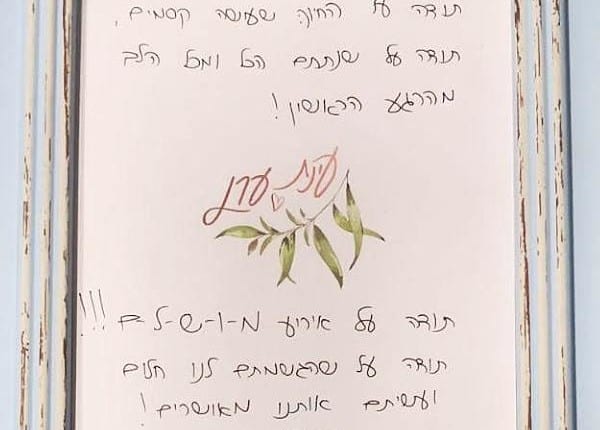 תודה על החיוך שעושה קסמים,
תודה על שנתתם הכל ומכל הלב
מהרגע הראשון!
עינת ♡ ערן
תודה על אירוע מ-ו-ש-ל-ם!!!
תודה על שהגשמתם לנו חלום
ועשיתם אותנו מאושרים!